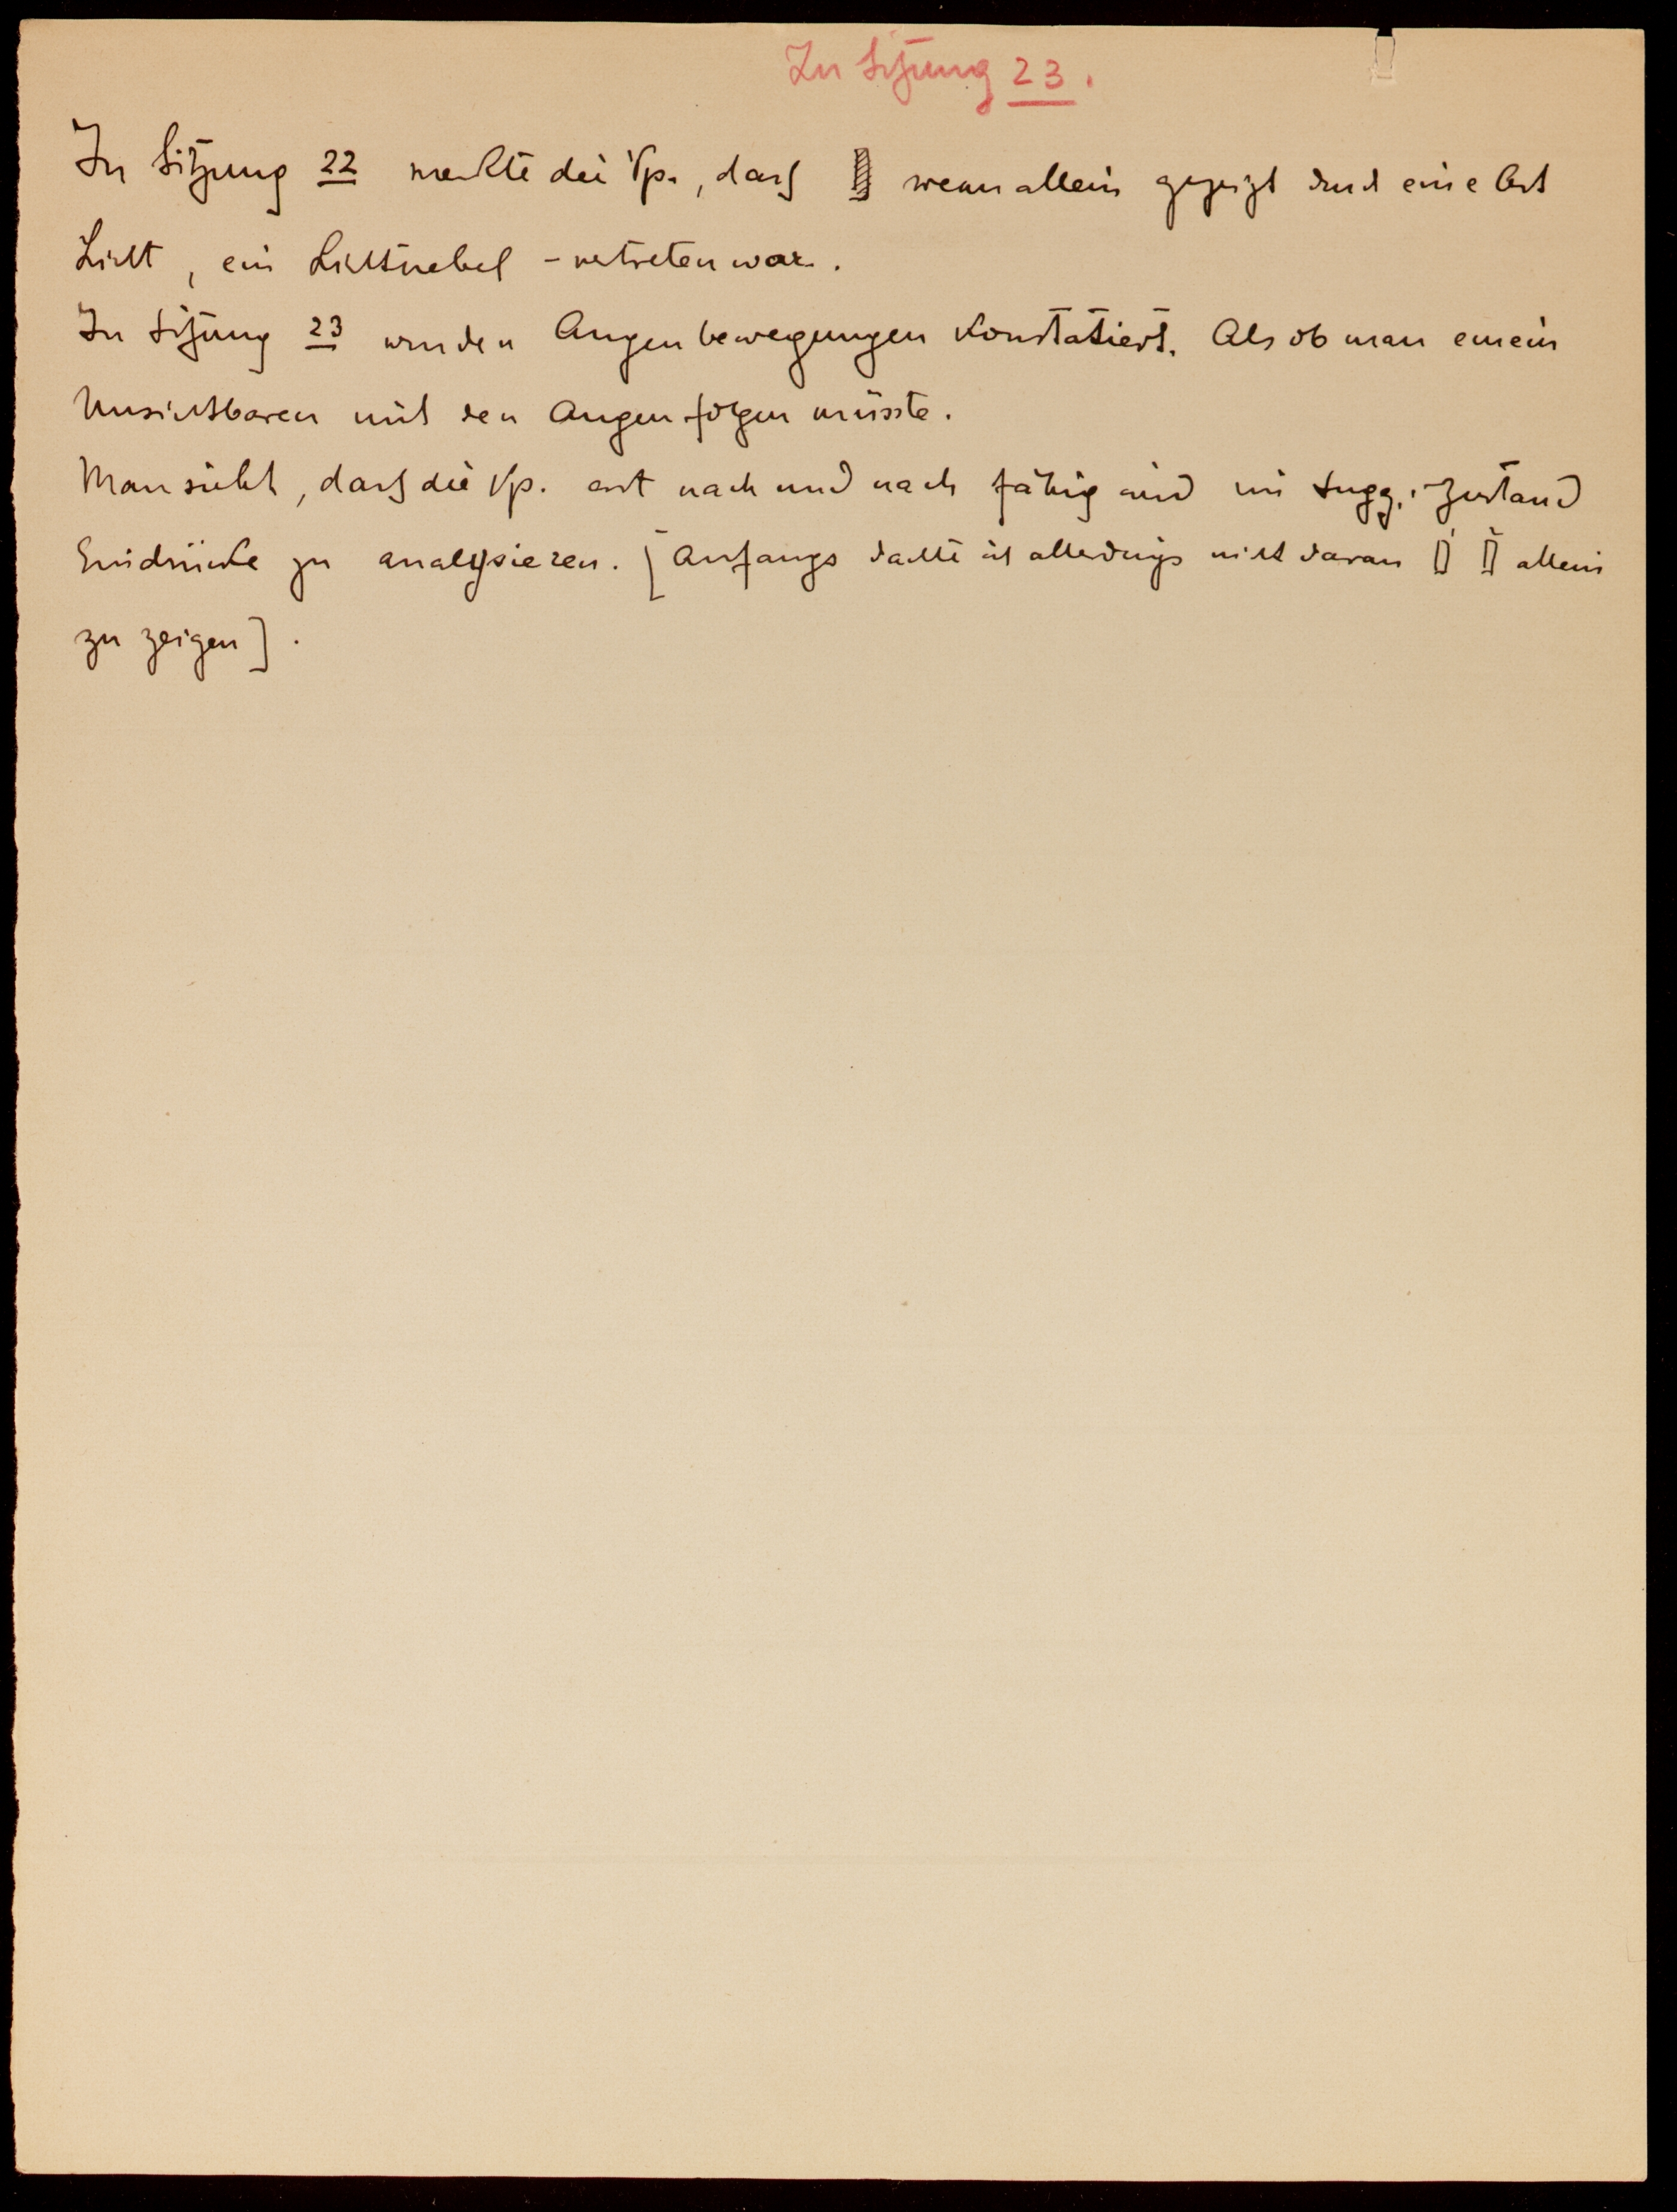 Zu Sitzung 23.
In Sitzung 22 merkte die Vp., dass wenn allein gezeigt durch eine Art
Licht, ein Lichtnebel - vertreten war.
In Sitzung 23 wurden Augenbewegungen konstatiert. Als ob man einem
Unsichtbaren mit den Augen folgen müsste.
Man sieht, dass die Vp. erst nach und nach fähig wird im Sugg.-Zustand
Eindrücke zu analysieren. [Anfangs dachte ich allerdings nicht daran allein
zu zeigen].